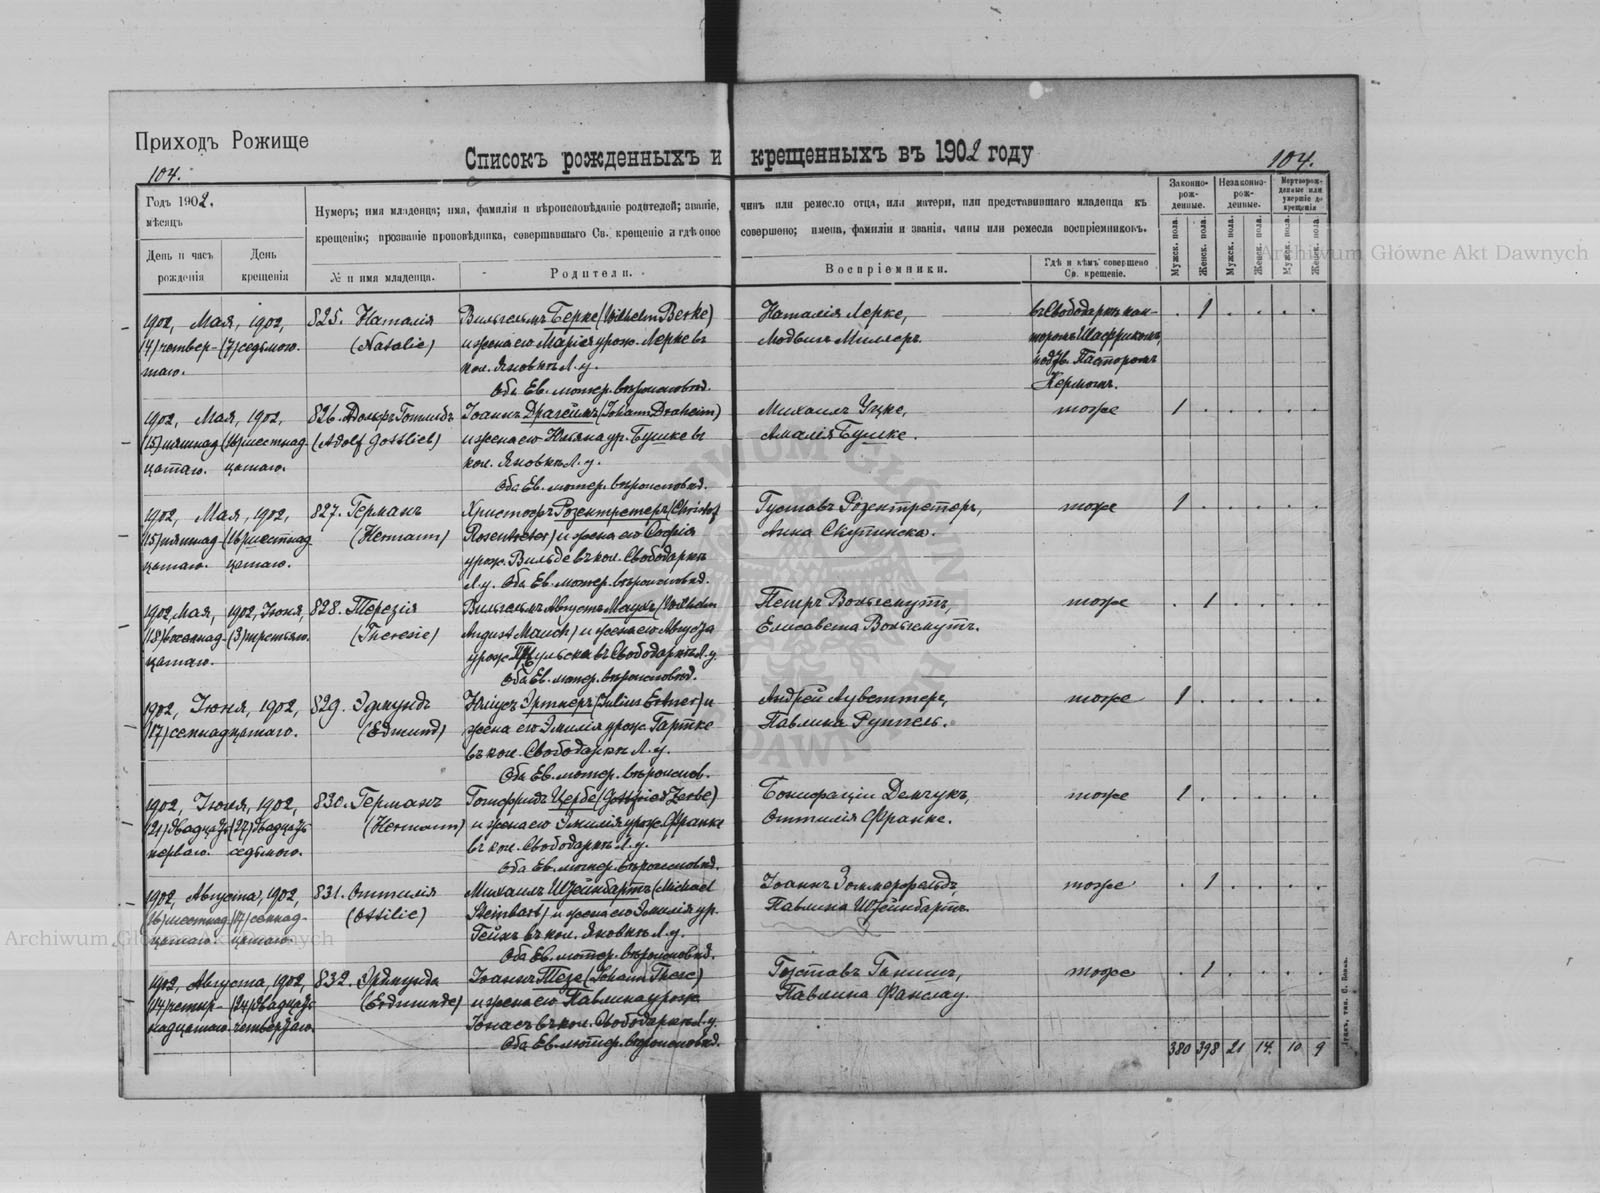 Приходъ Рожище
Списокъ рожденныхъ и крещенныхъ въ 1902 году
104.
104.
Годъ 1902.
мѣсяцъ
День и часъ рожденія
День крещенія
Нумеръ; имя младенца; имя, фамилія и вѣроисповѣданіе родителей; званіе, чинъ или ремесло отца, или матери, или представившаго младенца къ
крещенію; прозваніе проповѣдника, совершавшаго Св. крещеніе и гдѣ оное совершено; имена, фамиліи и званія, чины или ремесла воспріемниковъ.
№ и имя младенца.
Родители.
Воспріемники.
Гдѣ и кѣмъ совершено Св. крещеніе.
Законно-рож-денные.
Незаконно-рож-денные.
Мертворож-денные или умершіе до крещенія
Мужск. пола.
Женск. пола.
Мужск. пола.
Женск. пола.
Мужск. пола.
Женск. пола.
1902, Мая, 1902, 825. Наталія Вильгельмъ Берке (Wilhelm Berke) Наталія Лерке, въ Свободаркѣ кан- . 1 . . . .
(4) четвер- (7) седьмого. (Natalie) и жена его Марія урож. Лерке въ Людвигъ Миллеръ. торомъ Шафрикомъ,
таго. кол. Яновкѣ Л. у. подтв. Пасторомъ
Оба Ев. лютер. вѣроисповѣд. Керномъ.
1902, Мая, 1902, 826. Адольфъ Готлибъ Іоаннъ Драгеймъ (Johann Draheim) Михаилъ Уцке, тоже 1 . . . . .
(15) пятнад- (16) шестнад- (Adolf Gottlieb) и жена его Юліяна ур. Бушке въ Амалія Бушке.
цатаго. цатаго. кол. Яновкѣ Л. у.
Оба Ев. лютер. вѣроисповѣд.
1902, Мая, 1902, 827. Германъ Христофъ Розентретеръ (Christof Густавъ Розентретеръ, тоже 1 . . . . .
(15) пятнад- (16) шестнад- (Hermann) Rosentreter) и жена его Софія Анна Скупинска.
цатаго. цатаго. урож. Вильде въ кол. Свободаркѣ
Л. у. Оба Ев. лютер. вѣроисповѣд.
1902, Мая, 1902, Іюня, 828. Терезія Вильгельмъ Августъ Маухъ (Wilhelm Петръ Вольгемутъ, тоже . 1 . . . .
(18) восемнад- (3) третьяго. (Theresie) August Mauch) и жена его Августа Елисавета Вольгемутъ.
цатаго. въ Свободаркѣ Л. у.
Оба Ев. лютер. вѣроисповѣд.
1902, Іюня, 1902, 829. Эдмундъ Юліусъ Эртнеръ (Julius Ertner) и Андрей тоже 1 . . . . .
(17) семнадцатаго. (Edmund) жена его Эмилія урож. Гартке Павлина Руппель.
въ кол. Свободаркѣ Л. у.
Оба Ев. лютер. вѣроисповѣд.
1902, Іюня, 1902, 830. Германъ Готфридъ Цербе (Gottfried Zerbe) Бонифацій Демчукъ, тоже 1 . . . . .
(21) двадцать (27) двадцать (Hermann) и жена его Эмилія урож. Франке Оттилія Франке.
перваго. седьмого. въ кол. Свободаркѣ Л. у.
Оба Ев. лютер. вѣроисповѣд.
1902, Августа, 1902, 831. Оттилія Михаилъ Штейнбартъ (Michael Іоаннъ Зоммерфельдъ, тоже . 1 . . . .
(16) шестнад- (17) семнад- (Ottilie) Steinbart) и жена его Эмилія ур. Павлина Штейнбартъ.
цатаго. цатаго. Гейнъ въ кол. Яновкѣ Л. у.
Оба Ев. лютер. вѣроисповѣд.
1902, Августа, 1902, 832. Эрдмунда Іоаннъ Тезе (Johann These) Густавъ тоже . 1 . . . .
(14) четыр- (24) двадцать (Erdmunde) и жена его Павлина урож. Павлина Фанслау.
надцатаго. четвертаго. Іонасъ въ кол. Свободаркѣ Л. у.
Оба Ев. лютер. вѣроисповѣд.
380 398 21 14. 10 9
Archiwum Główne Akt Dawnych
Archiwum Główne Akt Dawnych